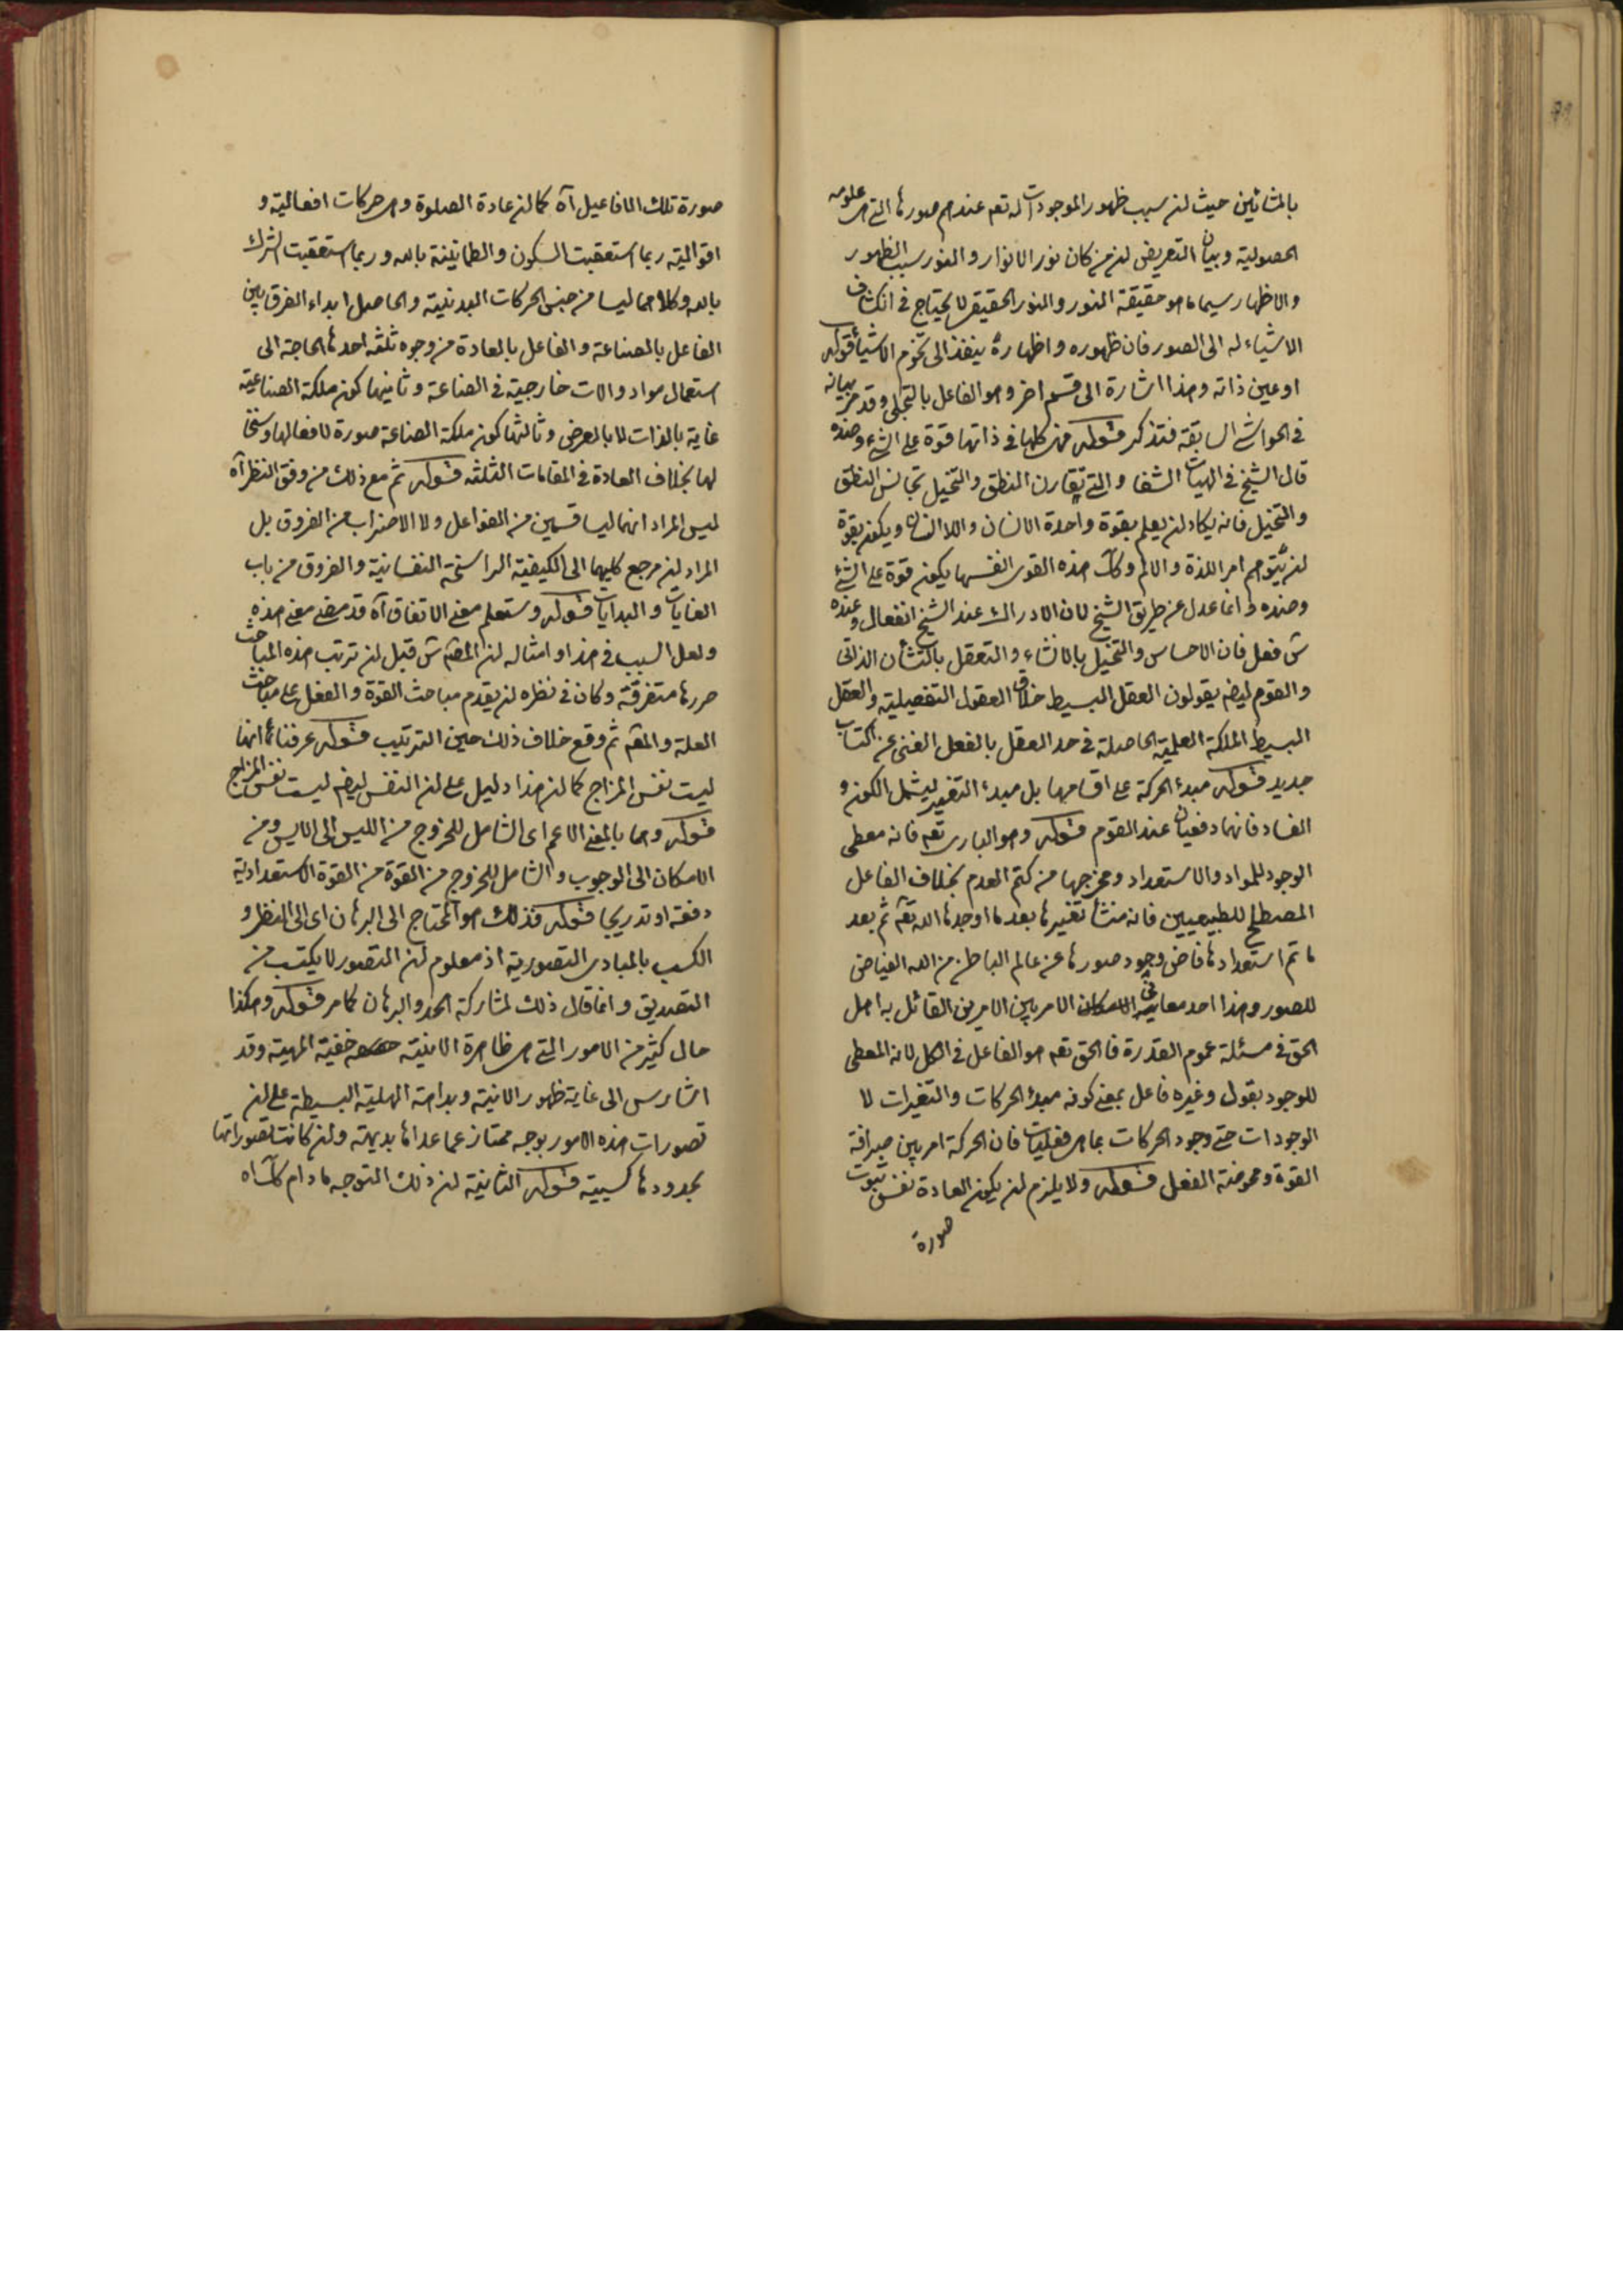 بالمشائين حيث لن سبب ظهور الموجودات له تعم عندهم صورها التى هى علومه
الحصولية وبيان التعريض لن من كان نور الانوار والنور سبب الظهور
والاظهار سيما ما هو حقيقة النور والنور الحقيقى لا يحتاج فى انكشاف
الاشياء له الى الصور فان ظهوره واظهاره ينفذ الى تخوم الاشياء قوله
او عين ذاته وهذا اشارة الى قسم اخر وهو الفاعل بالتجلى وقد مر بيانه
فى الحواشى السابقة فتذكر قوله فهى كلها فى ذاتها قوة على الشئ وضده
قال الشيخ فى الهيات الشفا والتى تقارن النطق والتخيل تجانس النطق
والتخيل فانه يكاد لن يعلم بقوة واحدة الانسان واللا انسان ويكون بقوة
لن يتوهم امر اللذة والالم وكك هذه القوى انفسها يكون قوة على الشئ
وضده وانما عدل عن طريق الشيخ لان الادراك عند الشيخ انفعال وعنده
س فعل فان الاحساس والتخيل بالانشاء والتعقل باكتشأن الذاتى
والقوم ليضه يقولون العقل البسيط خلاق العقول التفصيلية والعقل
البسيط الملكة العلمية الحاصلة فى حد العقل بالفعل الغنى عن اكتساب
جديد قوله مبدء الحركة على اقسامها بل مبدء التغير ليشمل الكون و
الفساد فانهما دفعيان عند القوم قوله وهو البارى تعم فانه معطى
الوجود للمواد والاستعداد ومخرجها من كتم العدم بخلاف الفاعل
المصطلح للطبيعيين فانه منشأ تغييرها بعد ما اوجدها الله تقه ثم بعد
ما تم استعدادها فاض وجود صورها عن عالم الباطن من الله الفياض
للصور وهذا احد معانى الامر بين الامرين القائل به اهل
الحق فى مسئلة عموم القدرة فالحق تعم هو الفاعل فى الكل لانه المعطى
للوجود بقول وغيره فاعل بمعنى كونه مبدء الحركات والتغيرات لا
الوجودات حتى وجود الحركات بما هى فعليات فان الحركة امر بين صرافة
القوة ومحوضة الفعل قوله ولا يلزم لن يكون العادة نفس ثبوت
صورة
صورة تلك الافاعيل آه كما لن عادة الصلوة وهى حركات افعالية و
اقوالية ربما استعقبت السكون والطمانينة بالله وربما استعقبت الشرك
بالله وكلاهما ليسا من جنس الحركات البدنية والحاصل ابداء الفرق بين
الفاعل بالصناعة والفاعل بالعادة من وجوه ثلثه احدها الحاجة الى
استعمال مواد والات خارجية فى الصناعة وثانيها كون ملكة الصناعية
غاية بالذات لا بالعرض وثالثها كون ملكة الصناعة صورة لافعالها وسنخا
لها بخلاف العادة فى المقامات الثلثه قوله ثم مع ذلك من وفق النظر آه
ليس المراد انهما ليسا قسمين من الفواعل ولا الاضراب من الفروق بل
المراد لن مرجع كليهما الى الكيفية الراسخة النفسانية والفروق من باب
الغايات والبدايات قوله وستعلم معنى الاتفاق آه قد مضى معنى هذه
ولعل السبب فى هذا وامثاله لن المصنف س قبل لن ترتب هذه المباحث
حررها متفرقة وكان فى نظره لن يقدم مباحث القوة والفعل على مباحث
العلة والمعم ثم وقع خلاف ذلك حين الترتيب قوله عرفناها انها
ليست نفس المزاج كما لن هذا دليل على لن النفس ليضه ليست نفس المزاج
قوله وهما بالمعنى الاعم اى الشامل للخروج من الليس الى الايس ومن
الامكان الى الوجوب والشامل للخروج من القوة من القوة الاستعدادية
دفعة او تدريجا قوله فذلك هو المحتاج الى البرهان اى الى النظر و
الكسب بالمبادى التصورية اذ معلوم لن التصور لا يكتسب من
التصديق وانما قال ذلك لمشاركة الحد والبرهان كما مر قوله وهكذا
حال كثير من الامور التى هى ظاهرة الانية خفية المهية وقد
اشار س الى غاية ظهور الانية وبداهة الهلية البسيطة على لن
تصورات هذه الامور بوجه ممتاز عما عداها بديهته ولن كانت تصوراتها
بحدودها كسبية قوله الثانية لن ذلك التوجه مادام كك آه